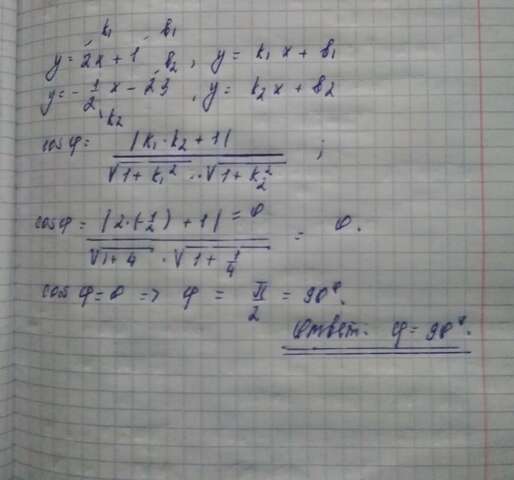 k₁ b₁
y = 2x + 1 b₂, y = k₁x + b₁
y = -1/2 x - 23, y = k₂x + b₂
k₂
cos φ = |k₁·k₂ + 1| / √1 + k₁² · √1 + k₂² ;
cos φ = |2·(-1/2) + 1| = 0 / √1 + 4 · √1 + 1/4 = 0.
cos φ = 0 => φ = π/2 = 90°.
Ответ. φ = 90°.